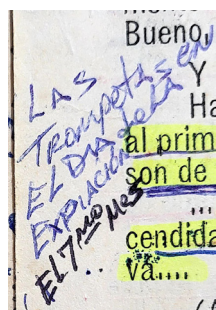 Bueno,
Y
Ha
al prim
son de
...
cendida
va....
LAS
TROMPETAS EN
EL DIA de la
EXPIACIÓN
(EL 7mo mes